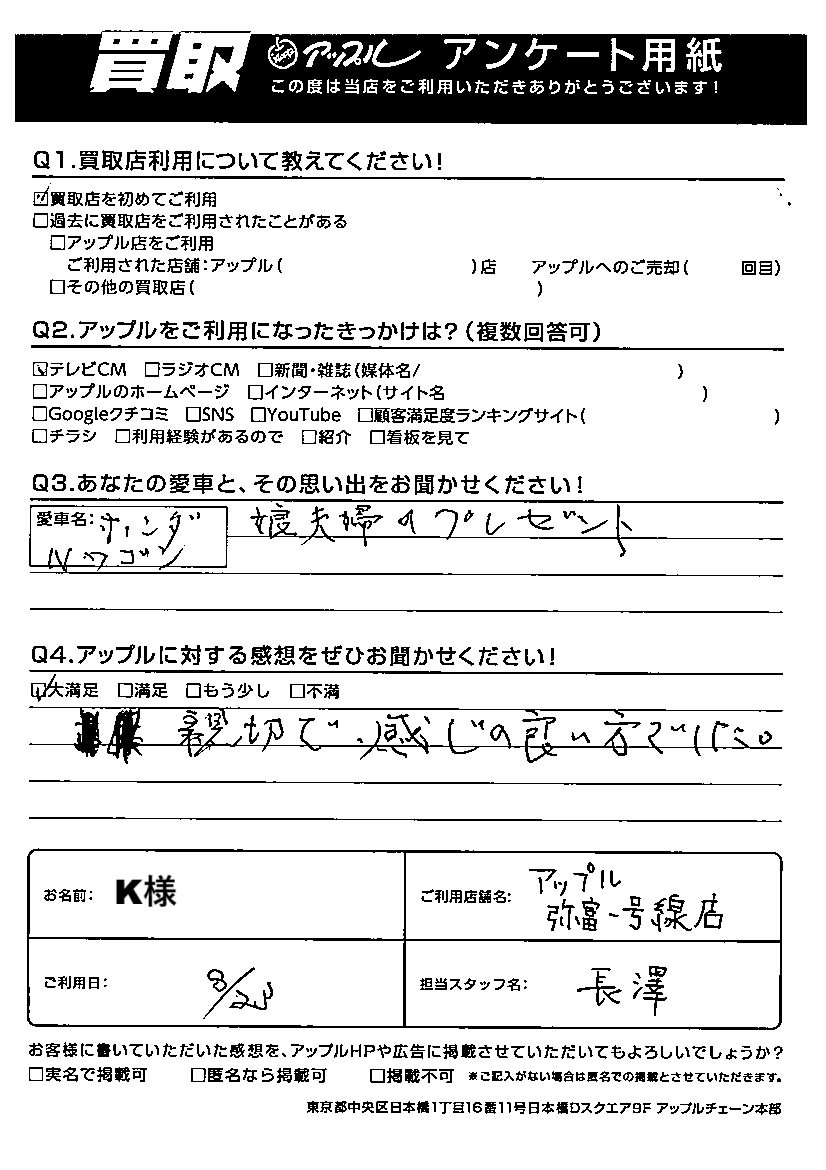 買取 アップル アンケート用紙
この度は当店をご利用いただきありがとうございます!
Q1.買取店利用について教えてください!
☑買取店を初めてご利用
□過去に買取店をご利用されたことがある
□アップル店をご利用
ご利用された店舗:アップル( )店 アップルへのご売却( 回目)
□その他の買取店( )
Q2.アップルをご利用になったきっかけは?(複数回答可)
☑テレビCM □ラジオCM □新聞・雑誌(媒体名/ )
□アップルのホームページ □インターネット(サイト名 )
□Googleクチコミ □SNS □YouTube □顧客満足度ランキングサイト( )
□チラシ □利用経験があるので □紹介 □看板を見て
Q3.あなたの愛車と、その思い出をお聞かせください!
愛車名:ホンダ 娘夫婦のプレゼント
Nワゴン
Q4.アップルに対する感想をぜひお聞かせください!
☑大満足 □満足 □もう少し □不満
親切で、感じの良い方でした。
お名前: K様 ご利用店舗名: アップル
弥富一号線店
ご利用日: 8/23 担当スタッフ名: 長澤
お客様に書いていただいた感想を、アップルHPや広告に掲載させていただいてもよろしいでしょうか?
□実名で掲載可 □匿名なら掲載可 □掲載不可 ※ご記入がない場合は匿名での掲載とさせていただきます。
東京都中央区日本橋1丁目16番11号日本橋Dスクエア9F アップルチェーン本部